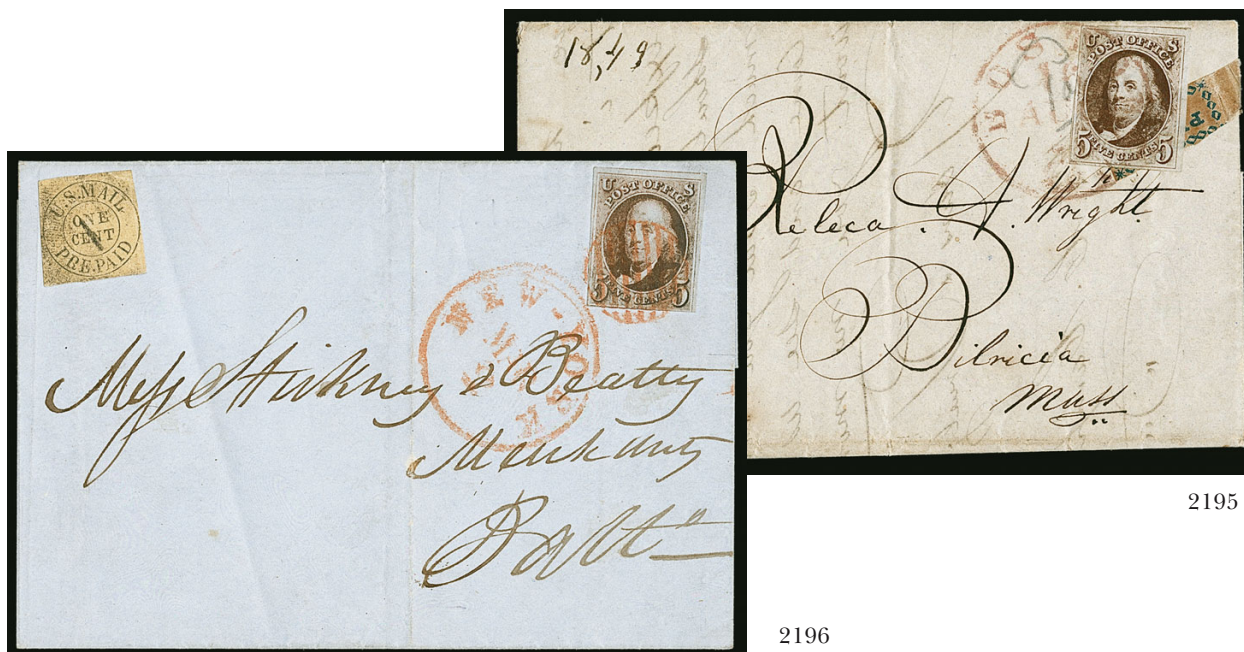 18,49
BOS
U S
POST OFFICE
5 FIVE CENTS 5
Releca . A. Wright.
Bilricia
Mass
2195
U.S. MAIL
ONE
CENT
PRE-PAID
U S
POST OFFICE
5 FIVE CENTS 5
NEW-YORK
Mess Stickney & Beatty
Merchants
Balto
2196